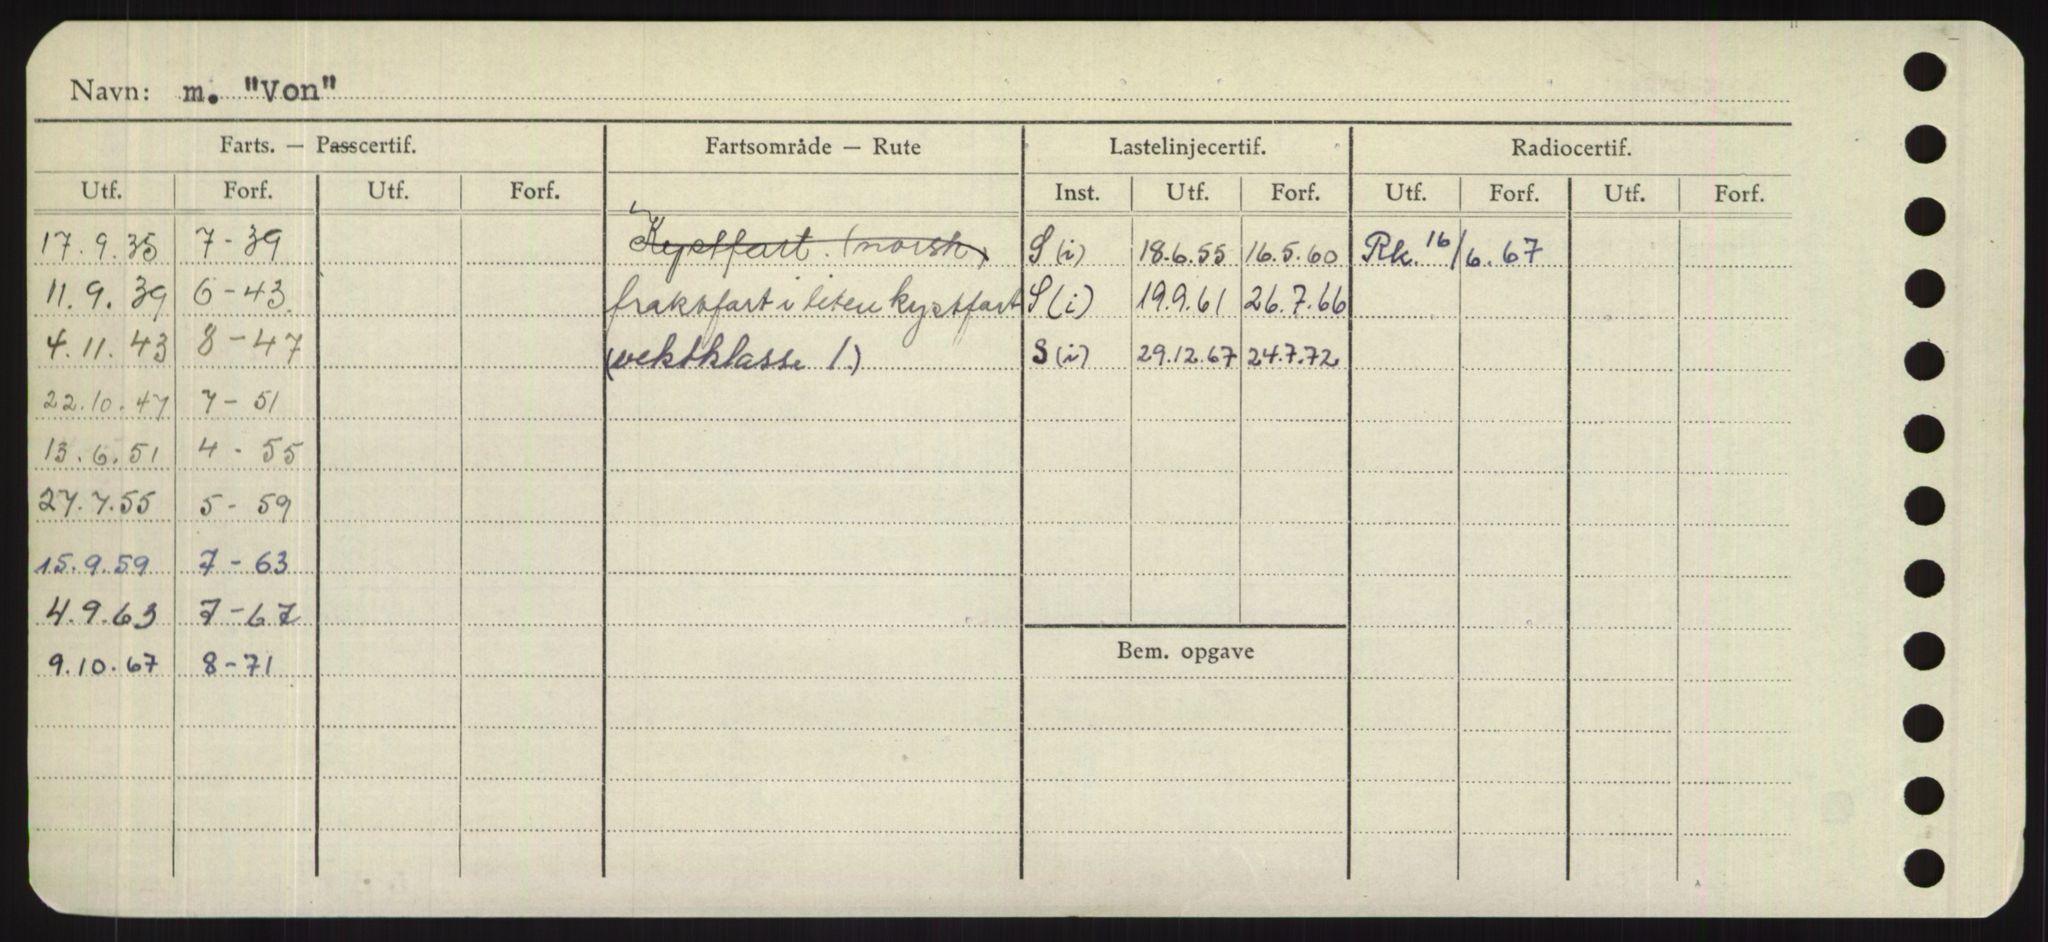 Navn: m. "Von"
Farts. — Passcertif. Fartsområde — Rute Lastelinjecertif. Radiocertif.
Utf. Forf. Utf. Forf. Inst. Utf. Forf. Utf. Forf. Utf. Forf.
17.9.35 7-39 Kystfart. (norsk) S (i) 18.6.55 16.5.60 Rk. 16/6.67
11.9.39 6-43. fraktfart i liten kystfart S (i) 19.9.61 26.7.66
4.11.43 8-47 (vektklasse 1.) S (i) 29.12.67 24.7.72
22.10.47 7-51
13.6.51 4-55
27.7.55 5-59
15.9.59 7-63
4.9.63 7-67
9.10.67 8-71
Bem. opgave